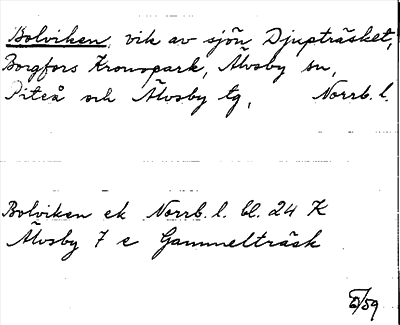 Bolviken, vik av sjön Djupträsket,
Borgfors Kronopark, Älvsby sn,
Piteå och Älvsby tg, Norrb. l.
Bolviken ek Norrb. l. bl. 24 K
Älvsby 7 c Gammelträsk
/59